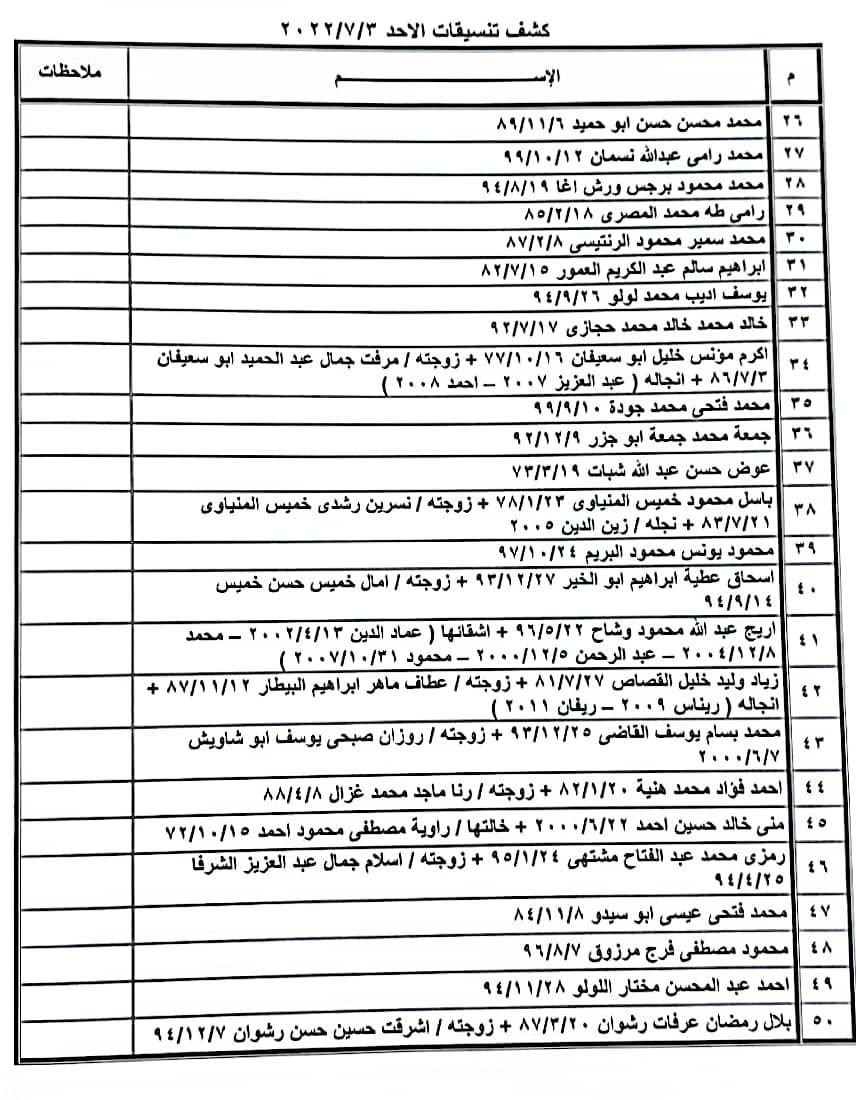 كشف تنسيقات الاحد ٢٠٢٢/٧/٣
م الإســـــــم ملاحظات
٢٦ محمد محسن حسن ابو حميد ٨٩/١١/٦
٢٧ محمد رامى عبدالله نسمان ٩٩/١٠/١٢
٢٨ محمد محمود برجس ورش اغا ٩٤/٨/١٩
٢٩ رامى طه محمد المصرى ٨٥/٢/١٨
٣٠ محمد سمير محمود الرنتيسى ٨٧/٢/٨
٣١ ابراهيم سالم عبد الكريم العمور ٨٢/٧/١٥
٣٢ يوسف اديب محمد لولو ٩٤/٩/٢٦
٣٣ خالد محمد خالد محمد حجازى ٩٢/٧/١٧
٣٤ اكرم مؤنس خليل ابو سعيفان ٧٧/١٠/١٦ + زوجته / مرفت جمال عبد الحميد ابو سعيفان
٨٦/٧/٣ + انجاله ( عبد العزيز ٢٠٠٧ – احمد ٢٠٠٨ )
٣٥ محمد فتحى محمد جودة ٩٩/٩/١٠
٣٦ جمعة محمد جمعة ابو جزر ٩٢/١٢/٩
٣٧ عوض حسن عبد الله شبات ٧٣/٣/١٩
٣٨ باسل محمود خميس المنياوى ٧٨/١/٢٣ + زوجته / نسرين رشدى خميس المنياوى
٨٣/٧/٢١ + نجله / زين الدين ٢٠٠٥
٣٩ محمود يونس محمود البريم ٩٧/١٠/٢٤
٤٠ اسحاق عطية ابراهيم ابو الخير ٩٣/١٢/٢٧ + زوجته / امال خميس حسن خميس
٩٤/٩/١٤
٤١ اريج عبد الله محمود وشاح ٩٦/٥/٢٢ + اشقائها ( عماد الدين ٢٠٠٢/٤/١٣ – محمد
٢٠٠٤/١٢/٨ – عبد الرحمن ٢٠٠٠/١٢/٥ – محمود ٢٠٠٧/١٠/٣١ )
٤٢ زياد وليد خليل القصاص ٨١/٧/٢٧ + زوجته / عطاف ماهر ابراهيم البيطار ٨٧/١١/١٢ +
انجاله ( ريناس ٢٠٠٩ – ريفان ٢٠١١ )
٤٣ محمد بسام يوسف القاضى ٩٣/١٢/٢٥ + زوجته / روزان صبحى يوسف ابو شاويش
٢٠٠٠/٦/٧
٤٤ احمد فؤاد محمد هنية ٨٢/١/٢٠ + زوجته / رنا ماجد محمد غزال ٨٨/٤/٨
٤٥ منى خالد حسين احمد ٢٠٠٠/٦/٢٢ + خالتها / راوية مصطفى محمود احمد ٧٢/١٠/١٥
٤٦ رمزى محمد عبد الفتاح مشتهى ٩٥/١/٢٤ + زوجته / اسلام جمال عبد العزيز الشرفا
٩٤/٤/٢٥
٤٧ محمد فتحى عيسى ابو سيدو ٨٤/١١/٨
٤٨ محمود مصطفى فرج مرزوق ٩٦/٨/٧
٤٩ احمد عبد المحسن مختار اللولو ٩٤/١١/٢٨
٥٠ بلال رمضان عرفات رشوان ٨٧/٣/٢٠ + زوجته / اشرقت حسين حسن رشوان ٩٤/١٢/٧